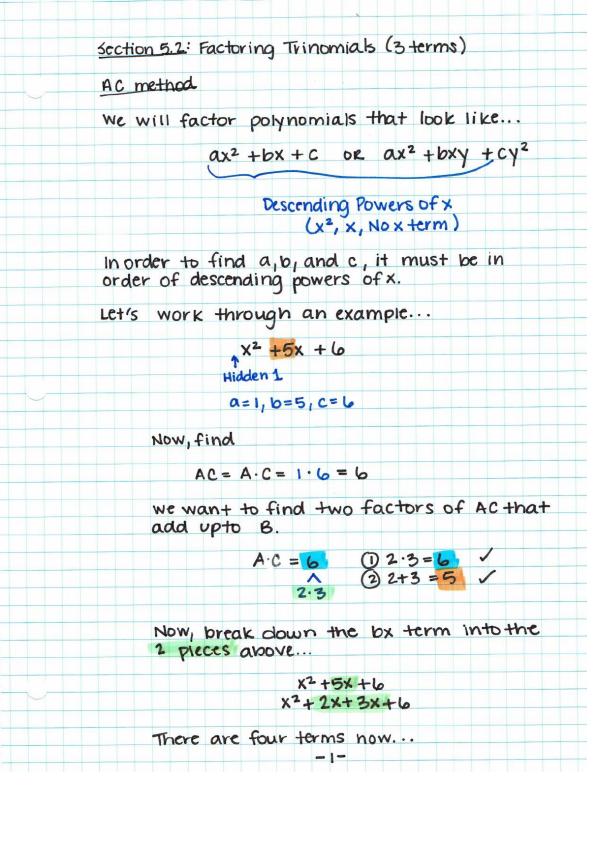 Section 5.2: Factoring Trinomials (3 terms)
AC method
We will factor polynomials that look like...
ax² + bx + c OR ax² + bxy + cy²
Descending Powers of x
(x², x, No x term)
In order to find a, b, and c, it must be in
order of descending powers of x.
Let's work through an example...
x² +5x + 6
Hidden 1
a=1, b=5, c=6
Now, find
AC = A·C = 1·6 = 6
We want to find two factors of AC that
add up to B.
A·C = 6 ① 2·3 = 6 ✓
2·3 ② 2+3 = 5 ✓
Now, break down the bx term into the
2 pieces above...
x² + 5x + 6
x² + 2x + 3x + 6
There are four terms now...
-1-